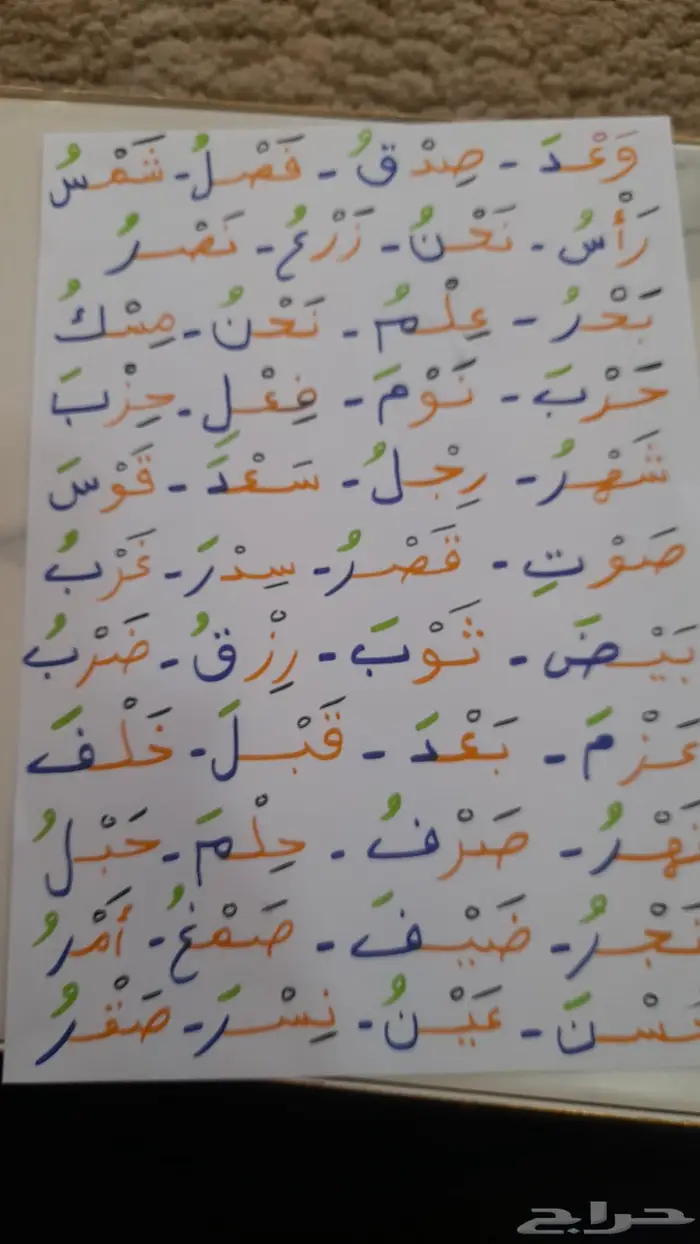 وَعْدَ - صِدْقُ - فَصْلُ - شَمْسُ
رَأْسُ - نَحْنُ - زَرْعُ - نَصْرُ
بَحْرُ - عِلْمُ - نَحْنُ - مِسْكُ
حَرْبَ - نَوْمَ - فِعْلِ - حِزْبَ
شَهْرُ - رِجْلُ - سَعْدَ - قَوْسَ
صَوْتِ - قَصْرُ - سِدْرَ - غَرْبُ
بَيْضَ - ثَوْبَ - رِزْقُ - ضَرْبُ
عَزْمَ - بَعْدَ - قَبْلَ - خَلْفَ
نَهْرُ - صَرْفُ - حِلْمَ - حَبْلُ
ضَيْفَ - صَمْغُ - أَمْرُ
عَيْنُ - نِسْرَ - صَقْرُ
حراج